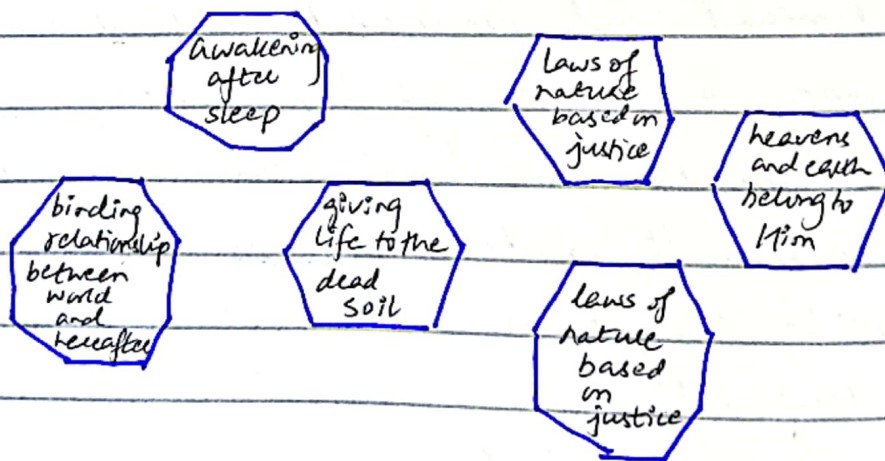 awakening
after
sleep
laws of
nature
based on
justice
heavens
and earth
belong to
Him
binding
relationship
between
world
and
hereafter
giving
life to the
dead
soil
laws of
nature
based
on
justice